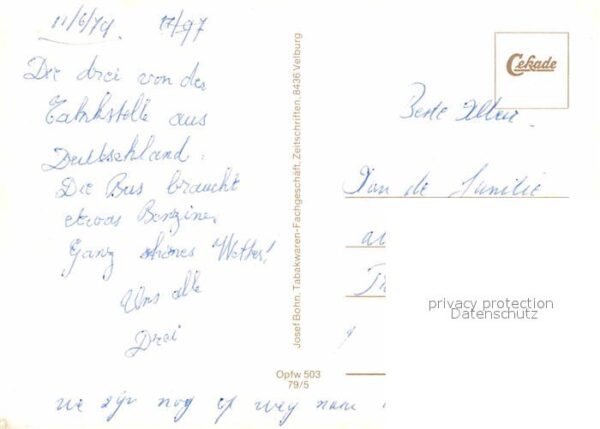 11/6/79 17/97
Die drei von der
Tahnkstelle aus
Deutschland.
Die Bus braucht
etwas Benzine,
Ganz schönes Wetter!
Uns alle
Drei
we zijn nog op weg naar
Josef Bohn, Tabakwaren-Fachgeschäft, Zeitschriften, 8436 Velburg
Opfw 503
79/5
Cekade
Beste
Van de Familie
privacy protection
Datenschutz